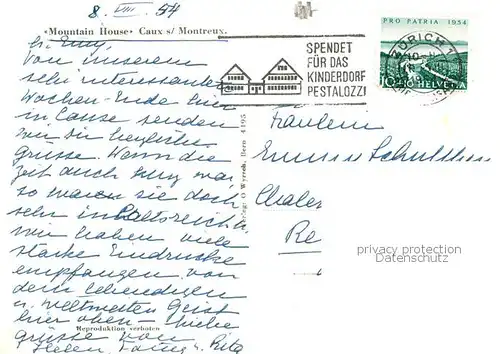 8. VIII. 54
«Mountain House» Caux s/ Montreux.
Von unserem
sehr interessanten
Wochen-Ende hier
in Cause senden
wir die herzliche
Grüsse. Wenn die
Zeit auch kurz war,
so waren sie doch
sehr
wir haben viele
starke Eindrücke
empfangen von
dem lebendigen
u. weltweiten Geist
hier oben – Liebe
Grüsse von
Reproduktion verboten
Helen, u. Rita
Verlag: O Wyrsch, Bern 4195
SPENDET
FÜR DAS
KINDERDORF
PESTALOZZI
PRO PATRIA 1954
ZÜRICH 1
HELVETIA
Fräulein
Chalet
Re
privacy protection
Datenschutz